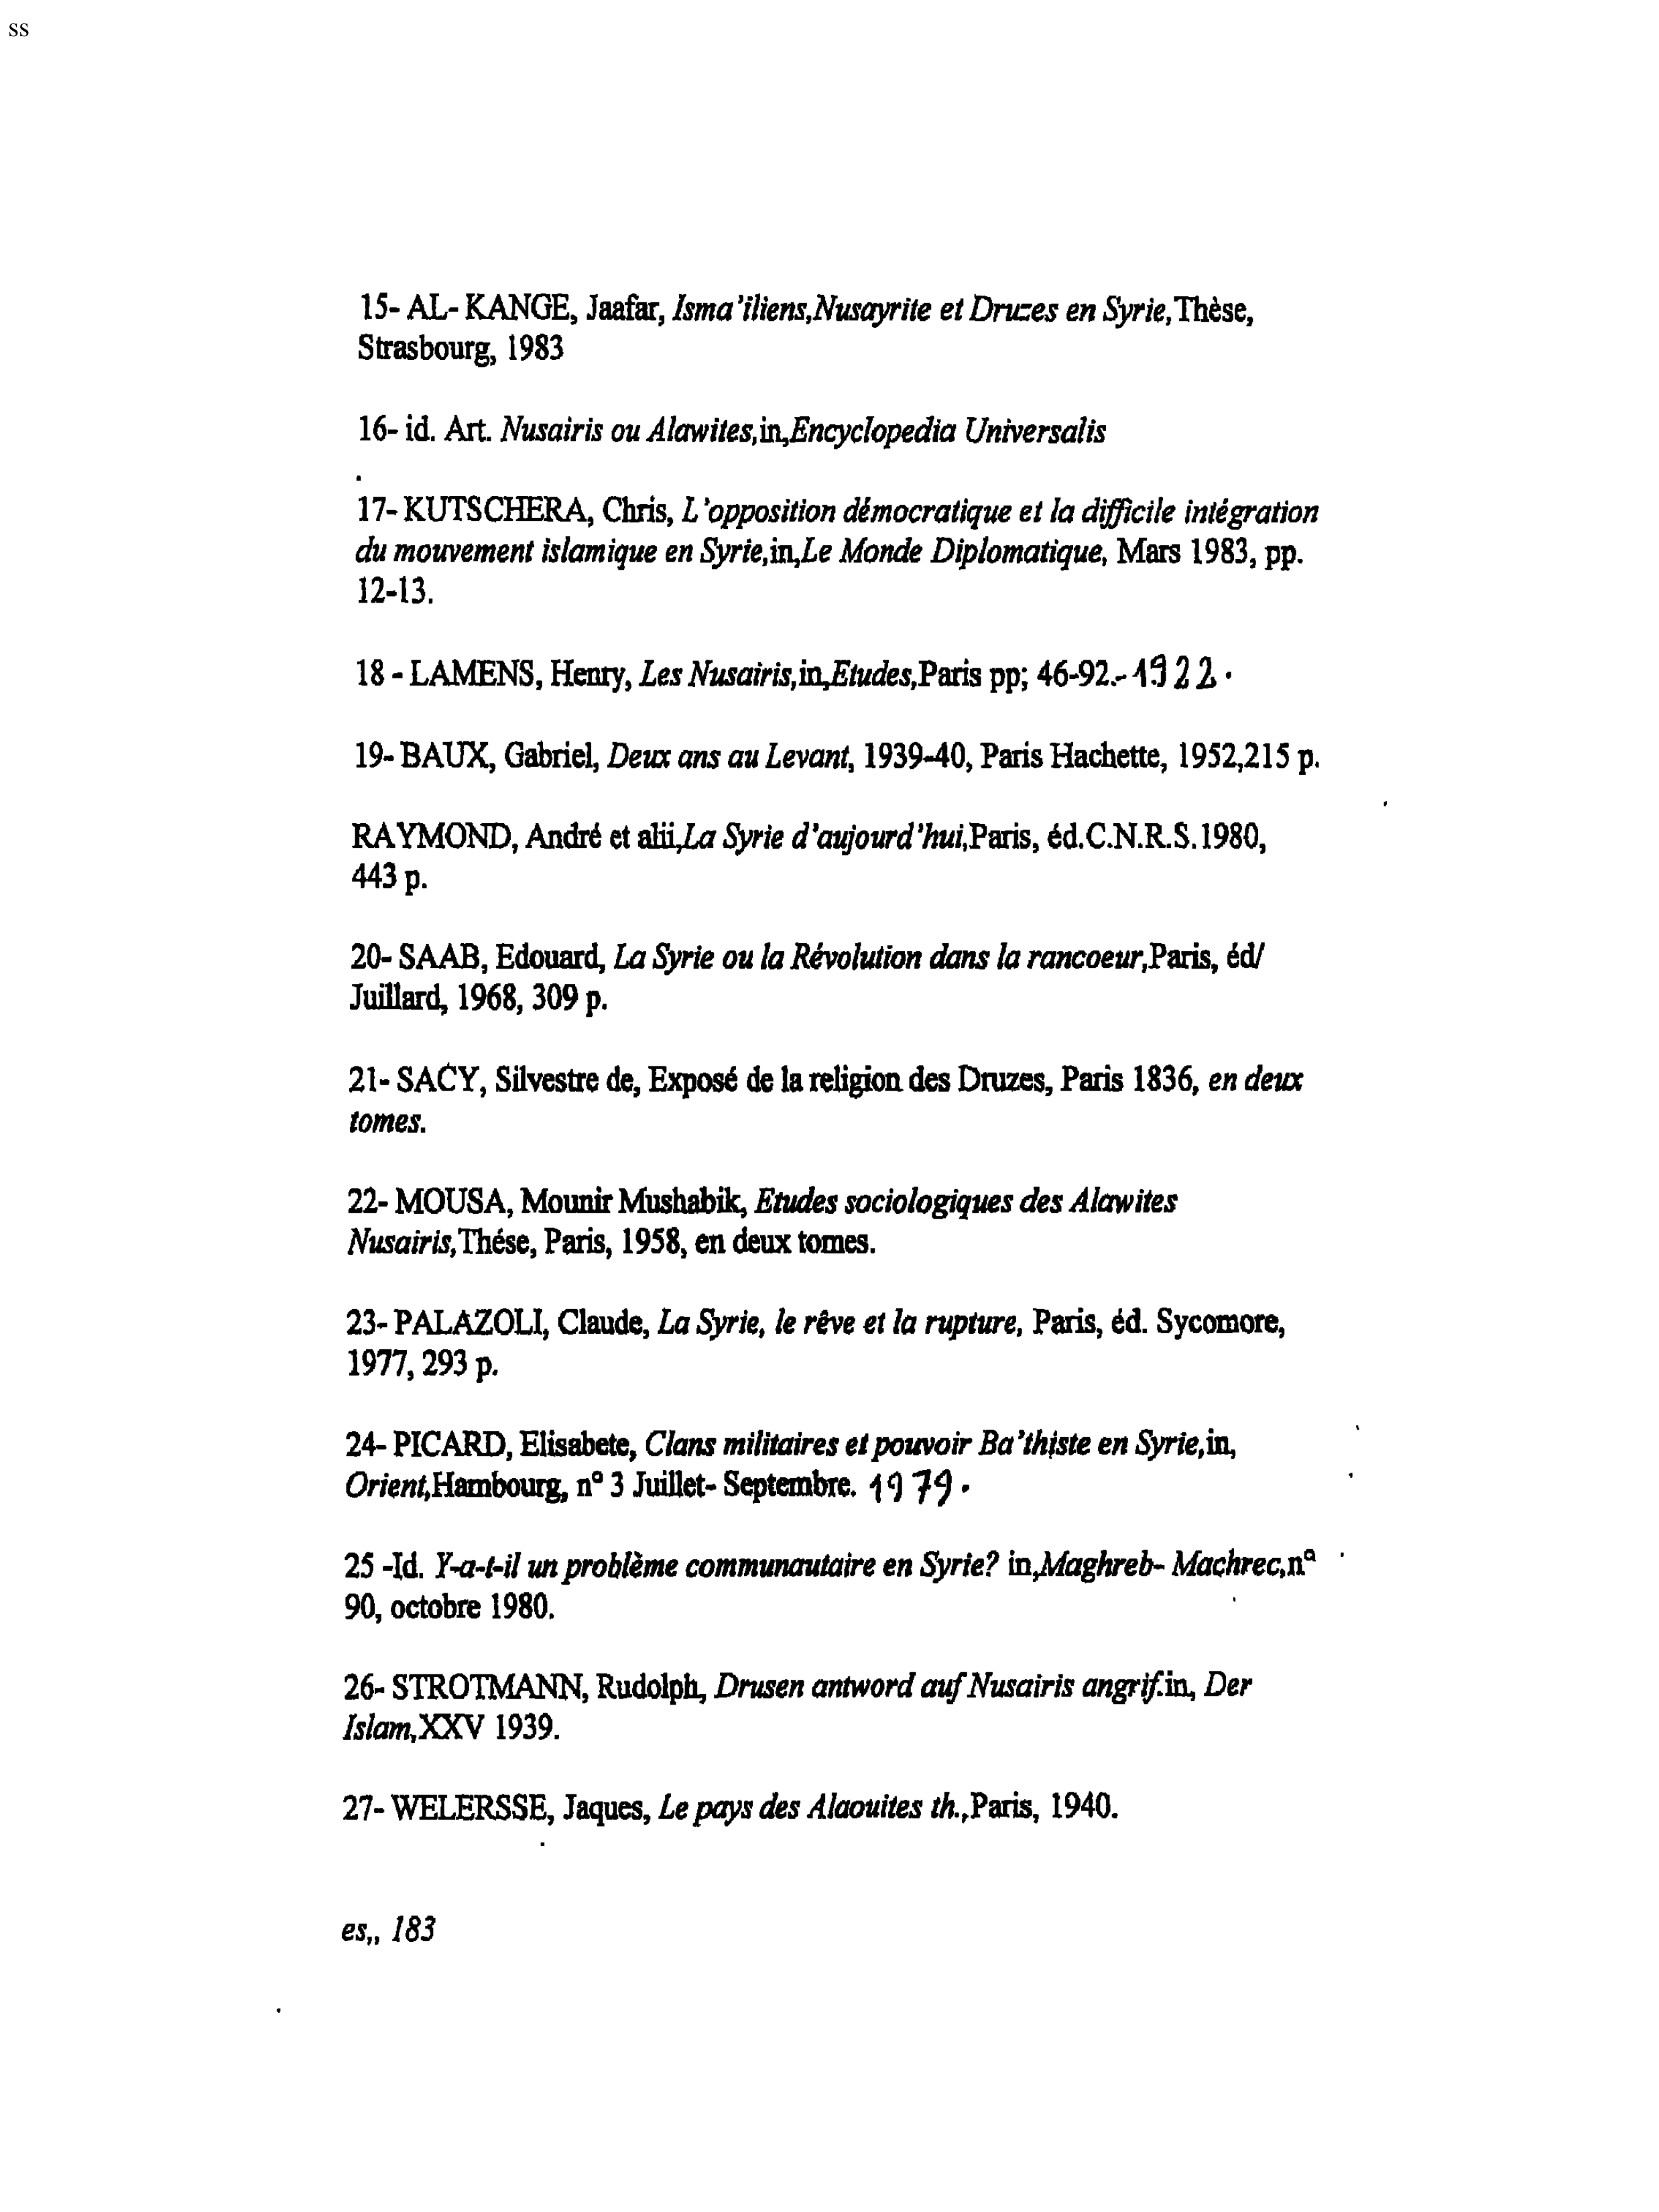 ss
15- AL- KANGE, Jaafar, Isma'iliens,Nusayrite et Druzes en Syrie,Thèse,
Strasbourg, 1983
16- id. Art. Nusairis ou Alawites,in,Encyclopedia Universalis
17- KUTSCHERA, Chris, L'opposition démocratique et la difficile intégration
du mouvement islamique en Syrie,in,Le Monde Diplomatique, Mars 1983, pp.
12-13.
18 - LAMENS, Henry, Les Nusairis,in,Etudes,Paris pp; 46-92.- 1922.
19- BAUX, Gabriel, Deux ans au Levant, 1939-40, Paris Hachette, 1952,215 p.
RAYMOND, André et alii,La Syrie d'aujourd'hui,Paris, éd.C.N.R.S.1980,
443 p.
20- SAAB, Edouard, La Syrie ou la Révolution dans la rancoeur,Paris, éd/
Juillard, 1968, 309 p.
21- SACY, Silvestre de, Exposé de la religion des Druzes, Paris 1836, en deux
tomes.
22- MOUSA, Mounir Mushabik, Etudes sociologiques des Alawites
Nusairis,Thése, Paris, 1958, en deux tomes.
23- PALAZOLI, Claude, La Syrie, le rêve et la rupture, Paris, éd. Sycomore,
1977, 293 p.
24- PICARD, Elisabete, Clans militaires et pouvoir Ba'thiste en Syrie,in,
Orient,Hambourg, nº 3 Juillet- Septembre. 1979.
25 -Id. Y-a-t-il un problème communautaire en Syrie? in,Maghreb- Machrec,nª
90, octobre 1980.
26- STROTMANN, Rudolph, Drusen antword auf Nusairis angrif.in, Der
Islam,XXV 1939.
27- WELERSSE, Jaques, Le pays des Alaouites th.,Paris, 1940.
es,, 183